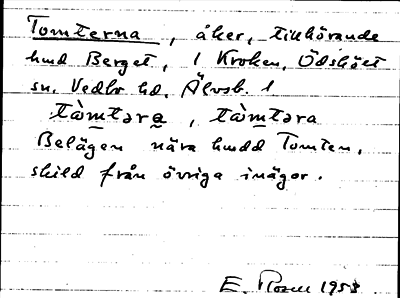 Tomterna, åker, tillhörande
hmd Berget, 1 Kroken, Ödskölt
sn. Vedbo hd. Älvsb. l
tàm̲tərа̲, tàm̲təra
Belägen nära hmdd Tomten,
skild från övriga inägor.
E. Rosell 1953